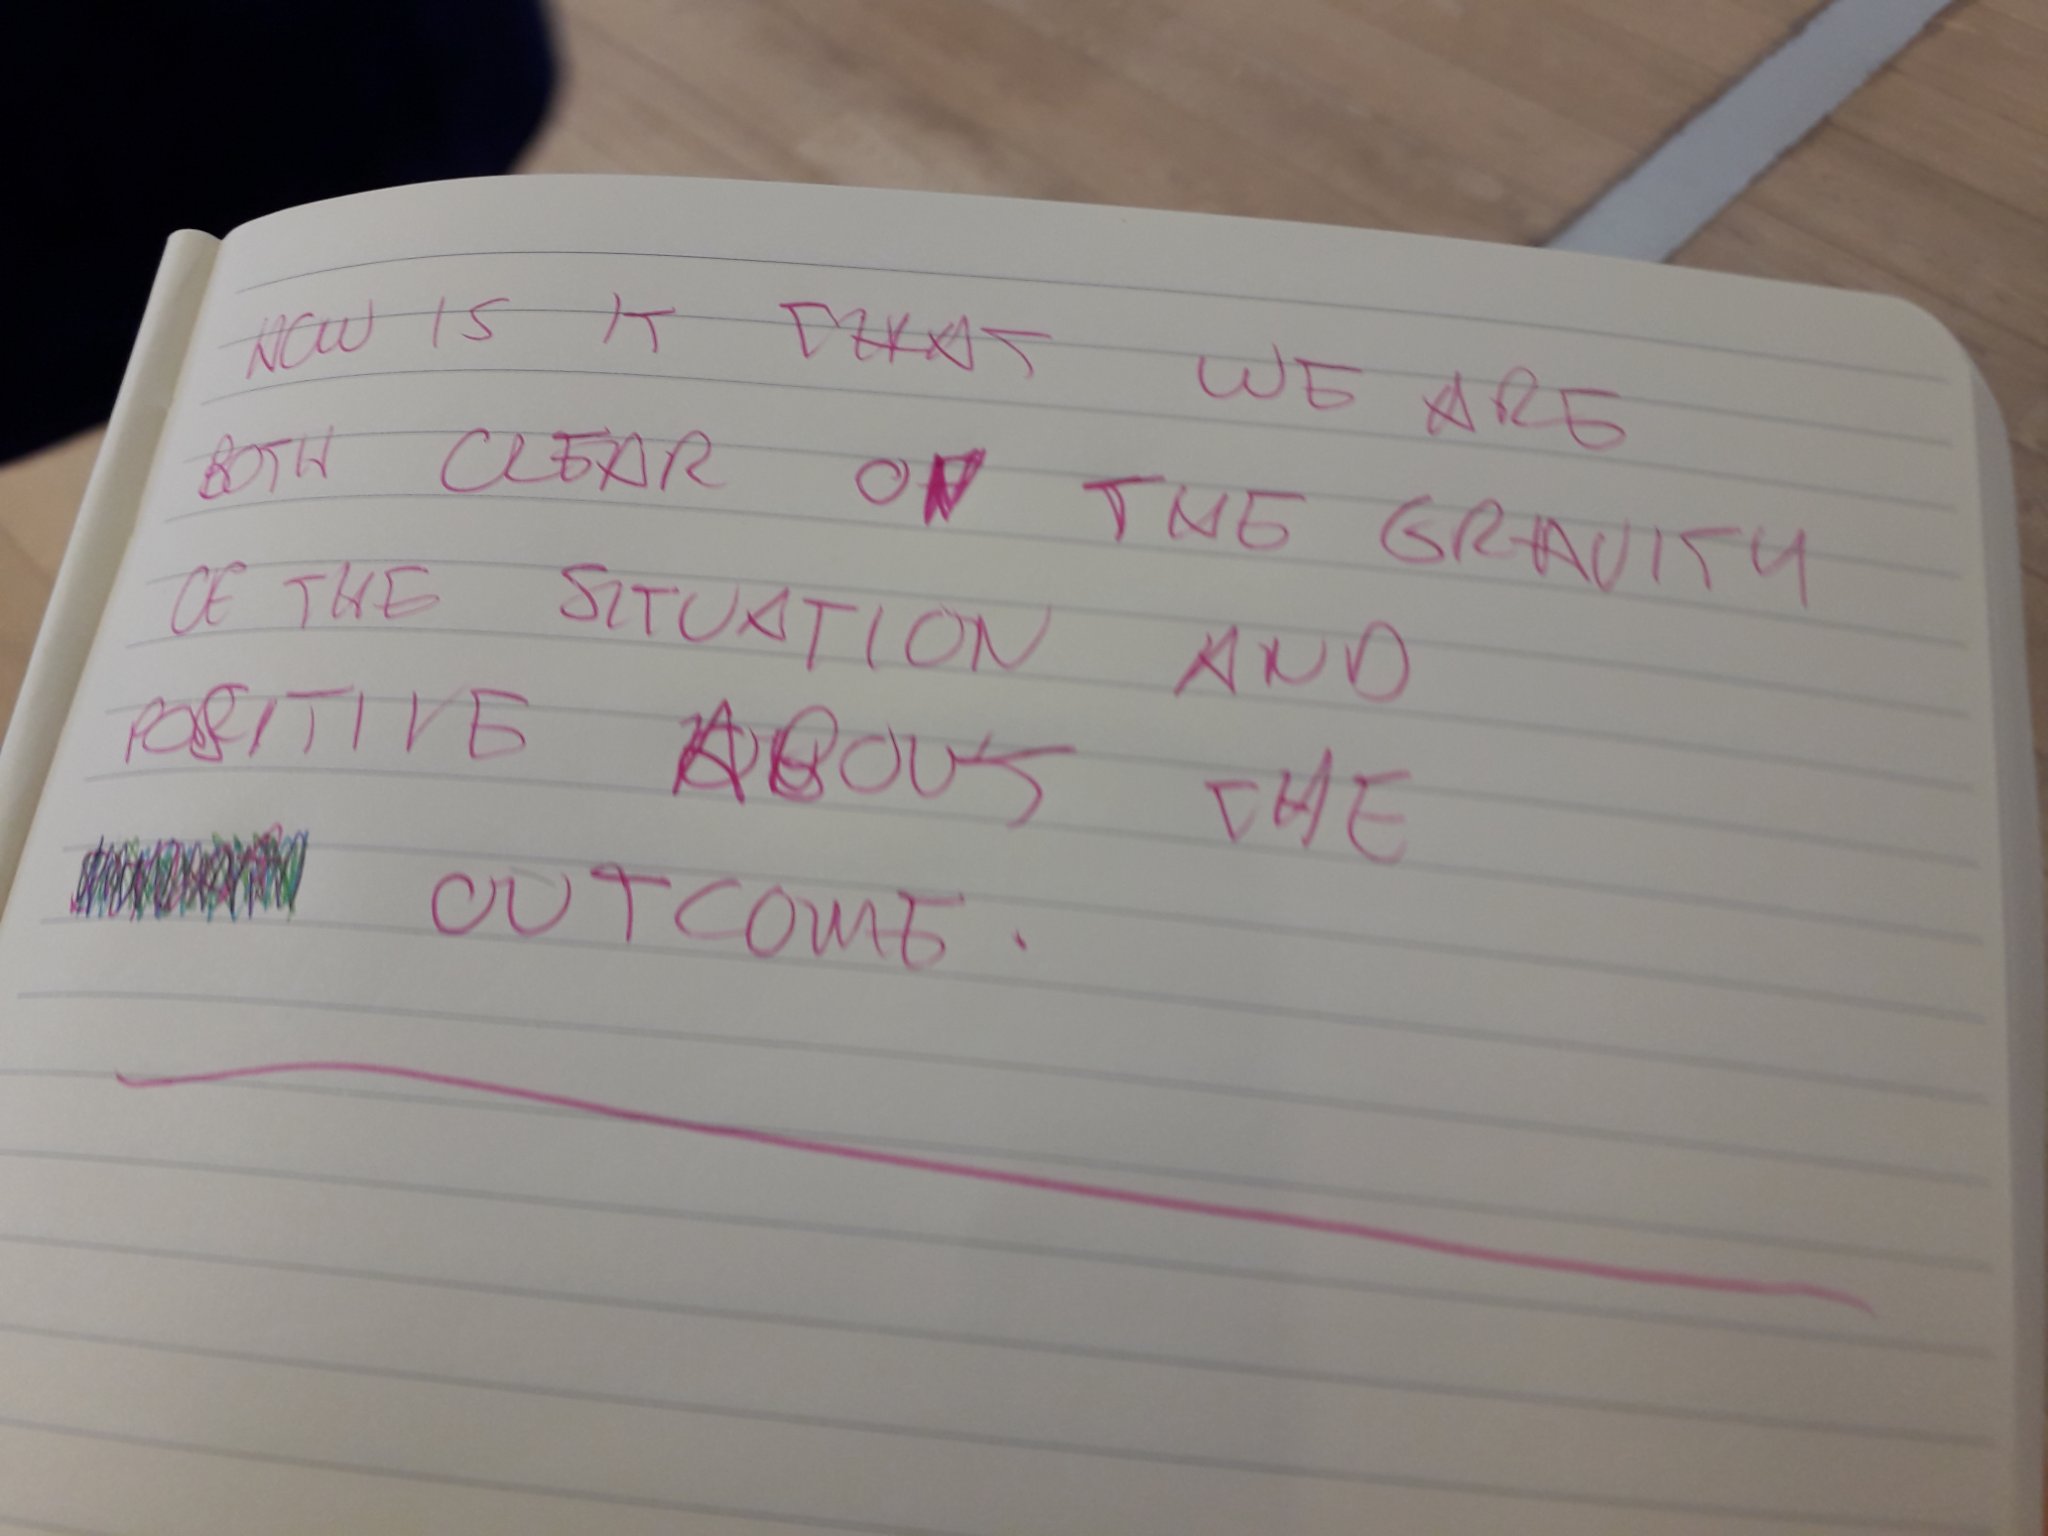 NOW IS IT THAT WE ARE
BOTH CLEAR ON THE GRAVITY
OF THE SITUATION AND
POSITIVE ABOUT THE
OUTCOME.